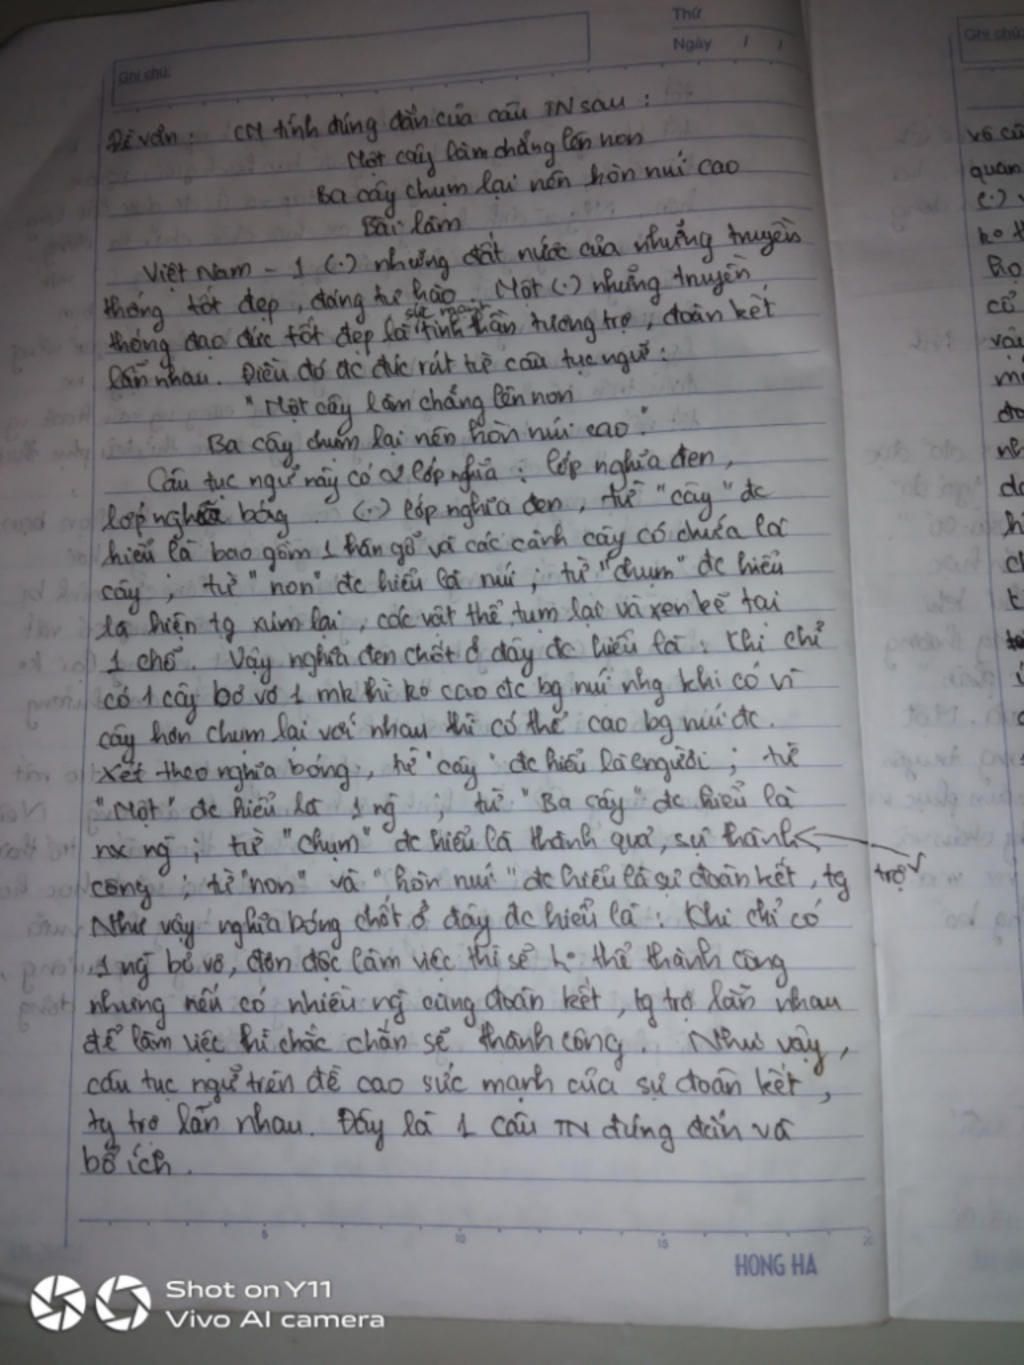 Thứ
Ngày / /
Ghi chú:
Đề văn: CM tính đúng đắn của câu TN sau:
Một cây làm chẳng lên non
Ba cây chụm lại nên hòn núi cao
Bài làm
Việt Nam - 1 (.) những đất nước của những truyền
thống tốt đẹp, đáng tự hào. Một (.) những truyền
sức mạnh
thống đạo đức tốt đẹp là tinh thần tương trợ, đoàn kết
lẫn nhau. Điều đó đc đúc rút từ câu tục ngữ:
"Một cây làm chẳng lên non
Ba cây chụm lại nên hòn núi cao."
Câu tục ngữ này có 2 lớp nghĩa: lớp nghĩa đen,
lớp nghĩa bóng. (.) lớp nghĩa đen, từ "cây" đc
hiểu là bao gồm 1 thân gỗ và các cành cây có chứa lá
cây; từ "non" đc hiểu là núi; từ "chụm" đc hiểu
là hiện tg xúm lại, các vật thể tụm lại và xen kẽ tại
1 chỗ. Vậy nghĩa đen chốt ở đây đc hiểu là: Khi chỉ
có 1 cây bơ vơ 1 mk thì ko cao đc bg núi nhg khi có
cây hơn chụm lại với nhau thì có thể cao bg núi đc.
Xét theo nghĩa bóng, từ "cây" đc hiểu là người; từ
"Một" đc hiểu là 1 ng; từ "Ba cây" đc hiểu là
ng; từ "chụm" đc hiểu là thành quả, sự thành
công; từ "non" và "hòn núi" đc hiểu là sự đoàn kết, tg trợ
Như vậy nghĩa bóng chốt ở đây đc hiểu là: Khi chỉ có
1 ng bơ vơ, đơn độc làm việc thì sẽ ko thể thành công
nhưng nếu có nhiều ng cùng đoàn kết, tg trợ lẫn nhau
để làm việc thì chắc chắn sẽ thành công. Như vậy,
câu tục ngữ trên đề cao sức mạnh của sự đoàn kết,
tg trợ lẫn nhau. Đây là 1 câu TN đúng đắn và
bổ ích.
5 10 15 20
HONG HA
Ghi chú:
vô cù
quan
(.)
ko t
cổ
Shot on Y11
Vivo AI camera